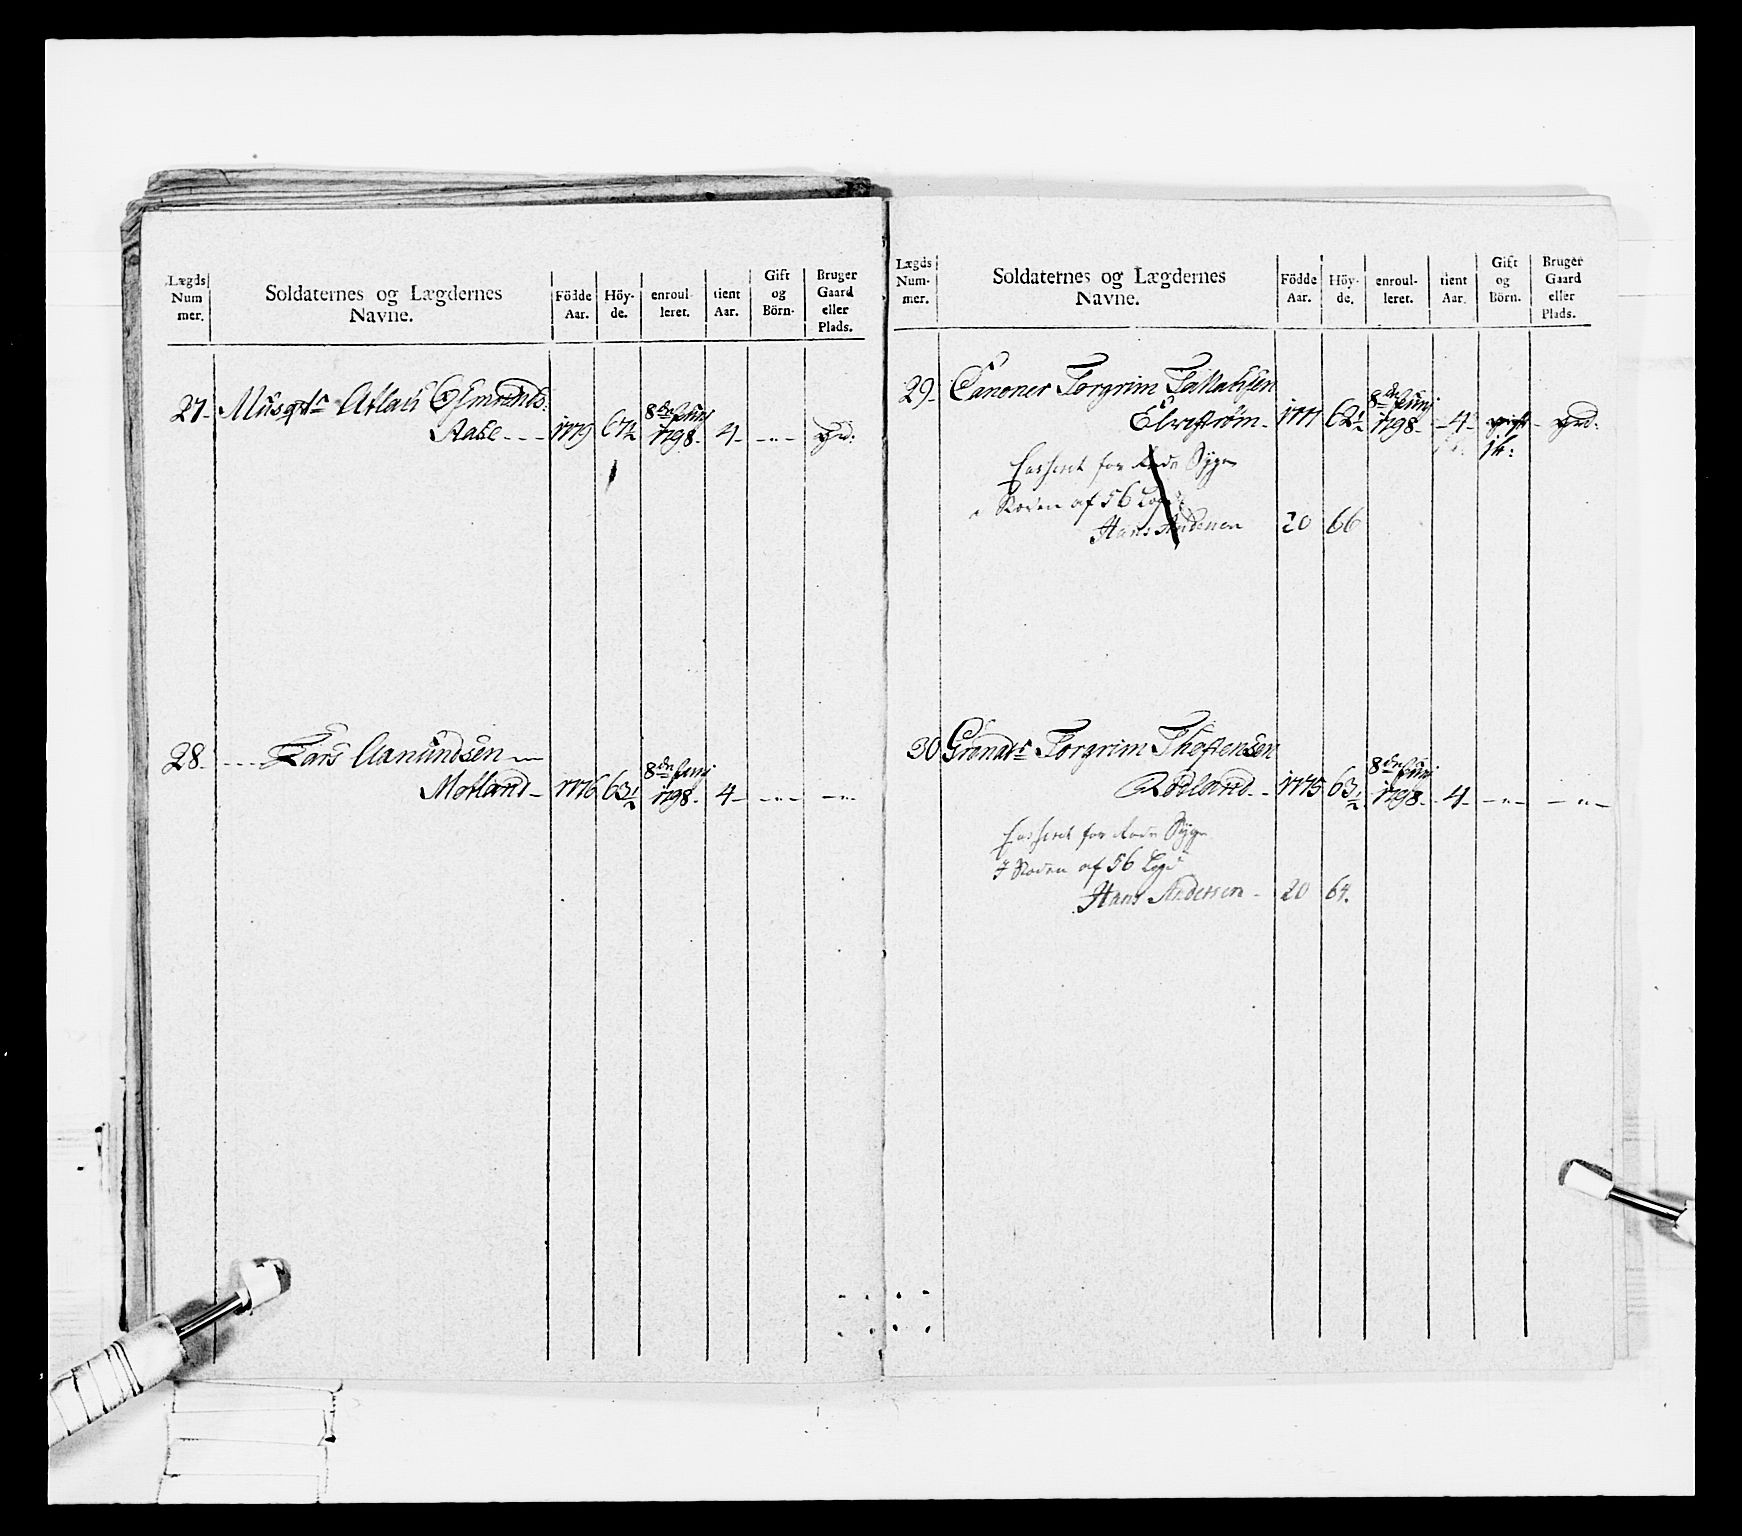 Lægds Num mer.
Soldaternes og Lægdernes Navne.
Födde Aar.
Höy- de.
enroul- leret.
tient Aar.
Gift og Börn.
Bruger Gaard eller Plads.
27. Musqtr Atlau
Aase - - - 1779 67½ 8de Junj 1798. 4 - - " - grd:
28. - - - Lars Aamundsen -
Motland - 1776 63½ 8de Junj 1798. 4 - - " - - " -
Lægds Num- mer.
Soldaternes og Lægdernes Navne.
Födde Aar.
Höy- de.
enroul- leret.
tient Aar.
Gift og Börn.
Bruger Gaard eller Plads.
29. Canoner Torgrim
Elvestrøm - 1777 62½ 8de Junj 1798. - 4 - gift - grd:
for Syge
Roden af 56
Hans Andersen 20 66
30 Grenadr Torgrim
Rødland - - 1775 63½ 8de Junj 1798. - 4 - - " - - " -
for Syge
Roden af 56
Hans Andersen - 20 64.